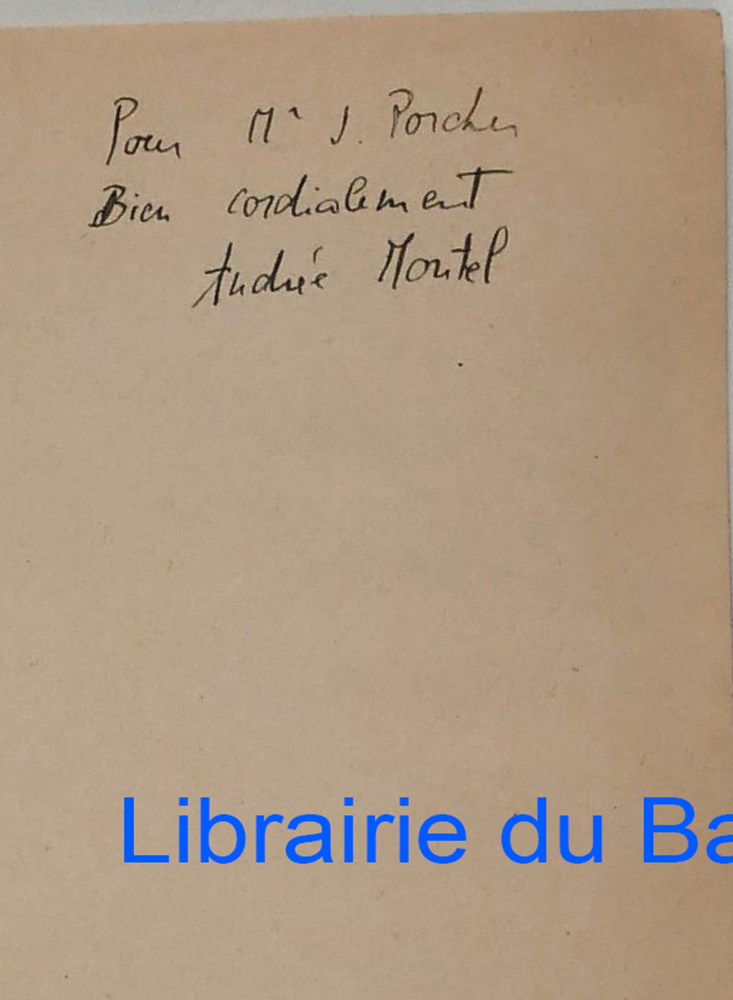 Pour Mr J. Porcher
Bien cordialement
Andrée Montel
Librairie du Ba